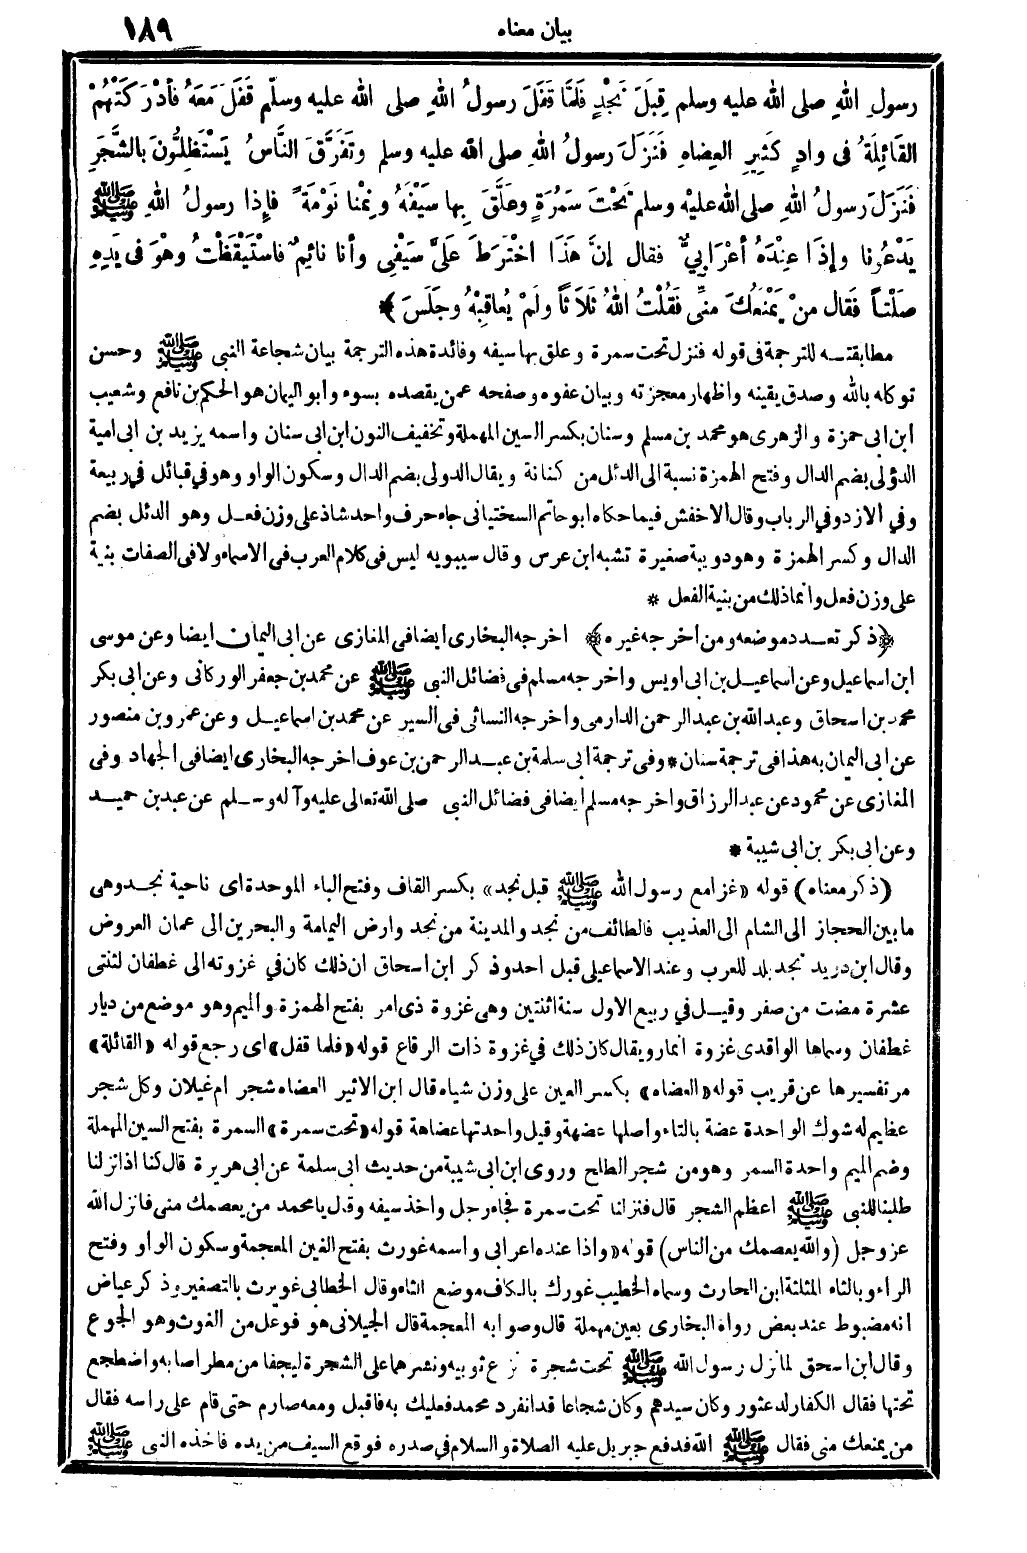 بيان معناه ١٨٩
رسولِ اللهِ صلى اللهُ عليه وسلم قِبَلَ نَجْدٍ فَلَمَّا قَفَلَ رسولُ اللهِ صلى اللهُ عليه وسلّم قَفَلَ مَعَهُ فأدْرَكَتْهُمْ
القَائِلَةُ فى وادٍ كَثِيرِ العِضاهِ فَنَزَلَ رسولُ اللهِ صلى الله عليه وسلم وتَفَرَّقَ النَّاسُ يَسْتَظِلُّونَ بالشَّجَرِ
فَنَزَلَ رسولُ اللهِ صلى الله عليْه وسلم تَحْتَ سَمُرَةٍ وعَلَّقَ بِها سَيْفَهُ ونِمْنا نَوْمَةً فإِذا رسولُ اللهِ ﷺ
يَدْعُونا وإِذَا عِنْدَهُ أعْرَابِيٌّ فقال إنَّ هَذَا اخْتَرَطَ عَلَيَّ سَيْفِى وأنا نائِمٌ فاسْتَيْقَظْتُ وهْوَ فى يَدِهِ
صَلْتاً فَقَال مَنْ يَمْنَعُكَ مِنِّى فَقُلْتُ اللهُ ثَلَاثاً ولَمْ يُعاقِبْهُ وجَلَسَ ﴾
مطابقتــه للترجمة فى قوله فنزل تحت سمرة وعلق بها سيفه وفائدة هذه الترجمة بيان شجاعة النبى ﷺ وحسن
توكله بالله وصدق يقينه واظهار معجزته وبيان عفوه وصفحه عمن يقصده بسوء وأبو اليمان هو الحكم بن نافع وشعيب
ابن ابى حمزة والزهرى هو محمد بن مسلم وسنان بكسر السين المهملة وتخفيف النون ابن ابى سنان واسمه يزيد بن ابى امية
الدؤلى بضم الدال وفتح الهمزة نسبة الى الدئل من كنانة ويقال الدولى بضم الدال وسكون الواو وهو في قبائل في ربيعة
وفي الازد وفي الرباب وقال الاخفش فيما حكاه ابو حاتم السختيانى جاء حرف واحد شاذ على وزن فعـل وهو الدئل بضم
الدال وكسر الهمزة وهو دويبة صغيرة تشبه ابن عرس وقال سيبويه ليس فى كلام العرب فى الاسماء ولا فى الصفات بنية
على وزن فعل وانما ذلك من بنية الفعل *
﴿ذكر تعـدد موضعه ومن أخرجه غيره﴾ اخرجه البخارى ايضا فى المغازى عن ابى اليمان ايضا وعن موسى
ابن اسماعيل وعن اسماعيـل بن ابى اويس واخرجه مسلم فى فضائل النبى ﷺ عن محمد بن جعفر الوركانى وعن ابى بكر
محمد بن اسحاق وعبد الله بن عبد الرحمن الدارمى وأخرجه النسائى فى السير عن محمد بن اسماعيـل وعن عمرو بن منصور
عن ابى اليمان به هذا فى ترجمة سنان * وفى ترجمة أبى سلمة بن عبـد الرحمن بن عوف اخرجه البخارى ايضا فى الجهاد وفى
المغازى عن محمود عن عبد الرزاق واخرجه مسلم ايضا فى فضائل النبى صلى الله تعالى عليه وآله وسـلم عن عبد بن حميـد
وعن ابى بكر بن ابى شيبة *
(ذكر معناه) قوله «غزا مع رسول الله ﷺ قبل نجد» بكسر القاف وفتح الباء الموحدة اى ناحية نجـد وهى
ما بين الحجاز الى الشام الى العذيب فالطائف من نجد والمدينة من نجد وارض اليمامة والبحرين الى عمان العروض
وقال ابن دريد نجد بلد للعرب وعند الاسماعيلى قبل احد وذكر ابن اسحاق ان ذلك كان في غزوته الى غطفان لثنتى
عشرة مضت من صفر وقيـل في ربيع الاول سنة اثنتين وهى غزوة ذى امر بفتح الهمزة والميم وهو موضع من ديار
غطفان وسماها الواقدى غزوة انمار ويقال كان ذلك في غزوة ذات الرقاع قوله «فلما قفل» اى رجع قوله «القائلة»
مر تفسيرها عن قريب قوله «العضاه» بكسر العين على وزن شياه قال ابن الاثير العضاه شجر ام غيلان وكل شجر
عظيم له شوك الواحدة عضة بالتاء واصلها عضهة وقيل واحدتها عضاهة قوله «تحت سمرة» السمرة بفتح السين المهملة
وضم الميم واحدة السمر وهو من شجر الطلح وروى ابن ابى شيبة من حديث ابى سلمة عن ابى هريرة قال كنا اذا نزلنا
طلبنا للنبى ﷺ اعظم الشجر قال فنزلنا تحت سمرة فجاء رجل واخذ سيفه وقال يا محمد من يعصمك منى فانزل الله
عز وجل (والله يعصمك من الناس) قوله «واذا عنده اعرابى واسمه غورث بفتح الغين المعجمة وسكون الواو وفتح
الراء وبالثاء المثلثة ابن الحارث وسماه الخطيب غورك بالكاف موضع الثاء وقال الخطابى غويرث بالتصغير وذكر عياض
انه مضبوط عند بعض رواة البخارى بعين مهملة قال وصوابه المعجمة قال الجيلانى هو فوعل من الغوث وهو الجوع
وقال ابن اسحق لما نزل رسول الله ﷺ تحت شجرة نزع ثوبيه ونشرهما على الشجرة ليجفا من مطر اصابه واضطجع
تحتها فقال الكفار لدعثور وكان سيدهم وكان شجاعا قد انفرد محمد فعليك به فاقبل ومعه صارم حتى قام على راسه فقال
من يمنعك منى فقال ﷺ الله فدفع جبريل عليه الصلاة والسلام في صدره فوقع السيف من يده فاخذه النبى ﷺ